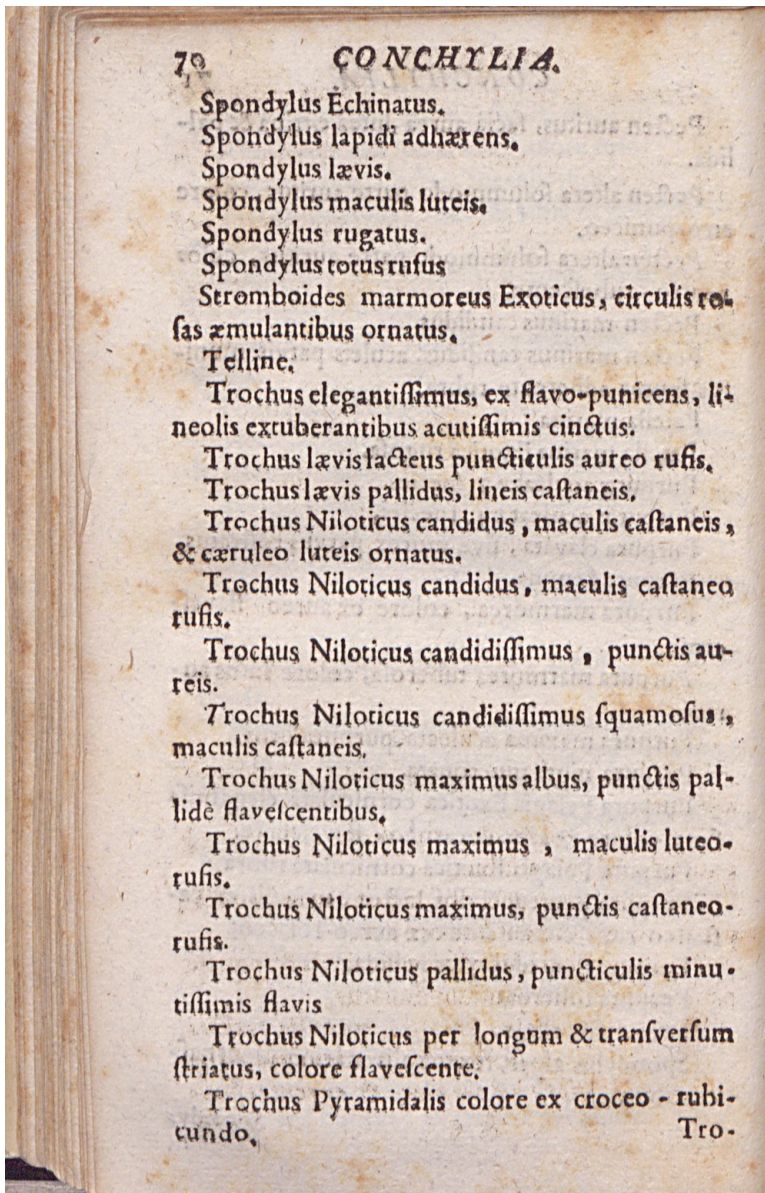 70 CONCHYLIA.
Spondylus Echinatus.
Spondylus lapidi adhærens.
Spondylus lævis.
Spondylus maculis luteis.
Spondylus rugatus.
Spondylus totus rufus
Stromboides marmoreus Exoticus, circulis ro-
ſas æmulantibus ornatus.
Telline.
Trochus elegantiſſimus, ex flavo-punicens, li-
neolis extuberantibus acutiſſimis cinctus.
Trochus lævis lacteus puncticulis aureo rufis.
Trochus lævis pallidus, lineis caſtaneis.
Trochus Niloticus candidus, maculis caſtaneis,
& cæruleo luteis ornatus.
Trochus Niloticus candidus, maculis caſtaneo
rufis.
Trochus Niloticus candidiſſimus, punctis au-
reis.
Trochus Niloticus candidiſſimus ſquamoſus,
maculis caſtaneis.
Trochus Niloticus maximus albus, punctis pal-
lidè flaveſcentibus.
Trochus Niloticus maximus, maculis luteo-
rufis.
Trochus Niloticus maximus, punctis caſtaneo-
rufis.
Trochus Niloticus pallidus, puncticulis minu-
tiſſimis flavis
Trochus Niloticus per longum & tranſverſum
ſtriatus, colore flaveſcente.
Trochus Pyramidalis colore ex croceo - rubi-
cundo.
Tro-